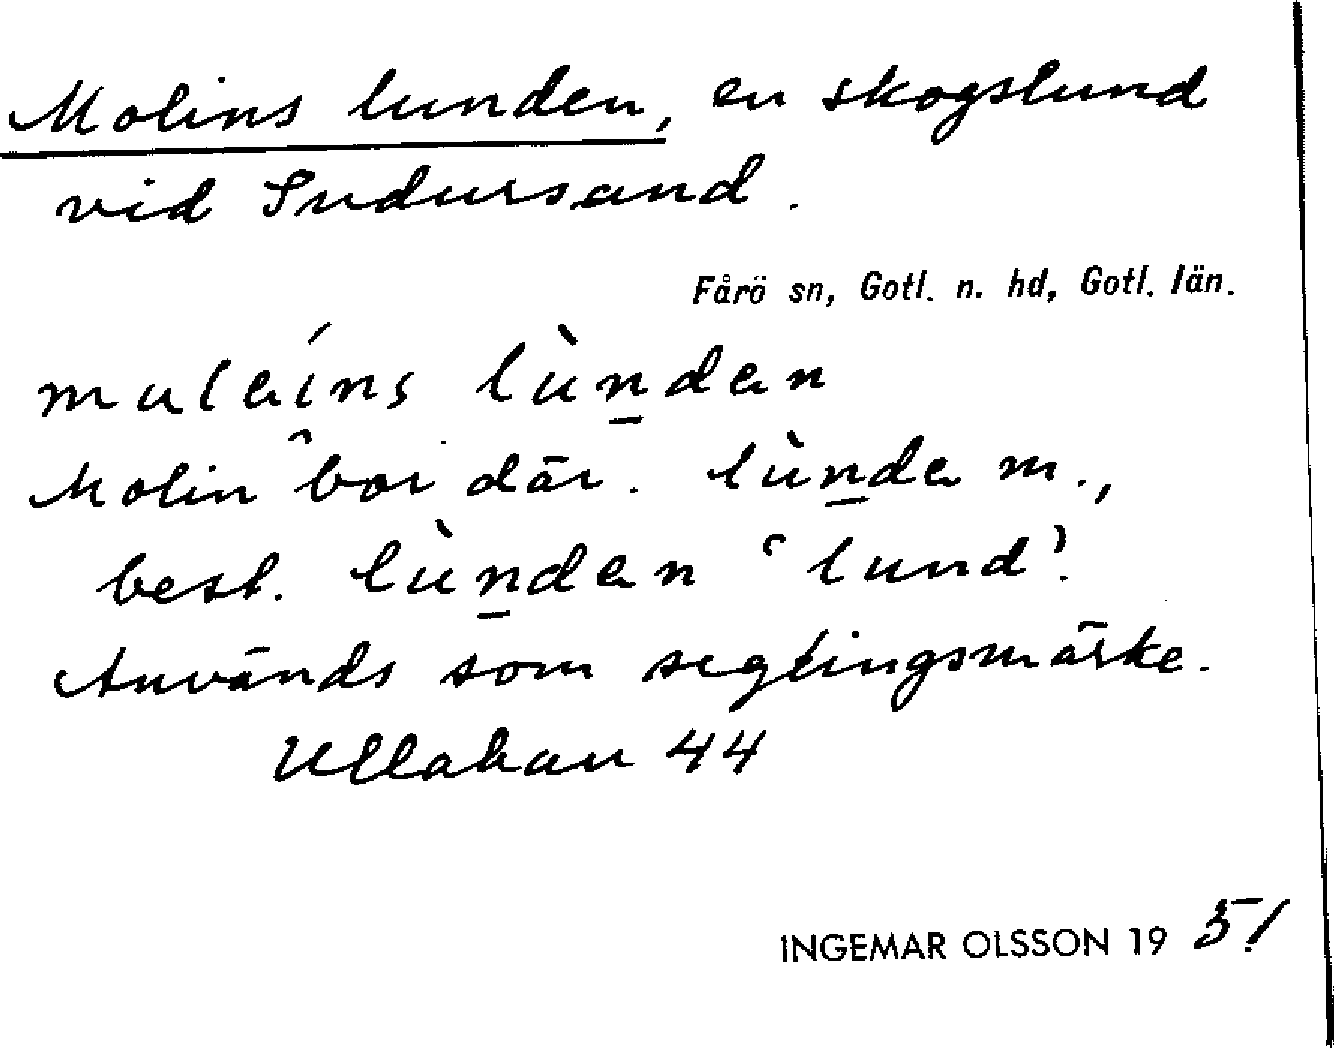 Molins lunden, en skogslund
vid Sudursand.
Fårö sn, Gotl. n. hd, Gotl. län.
muleíns lùn̲den
Molin bor där. lùn̲de m.,
best. lùn̲den 'lund'.
Används som seglingsmärke.
Ullahau 44
INGEMAR OLSSON 19 51